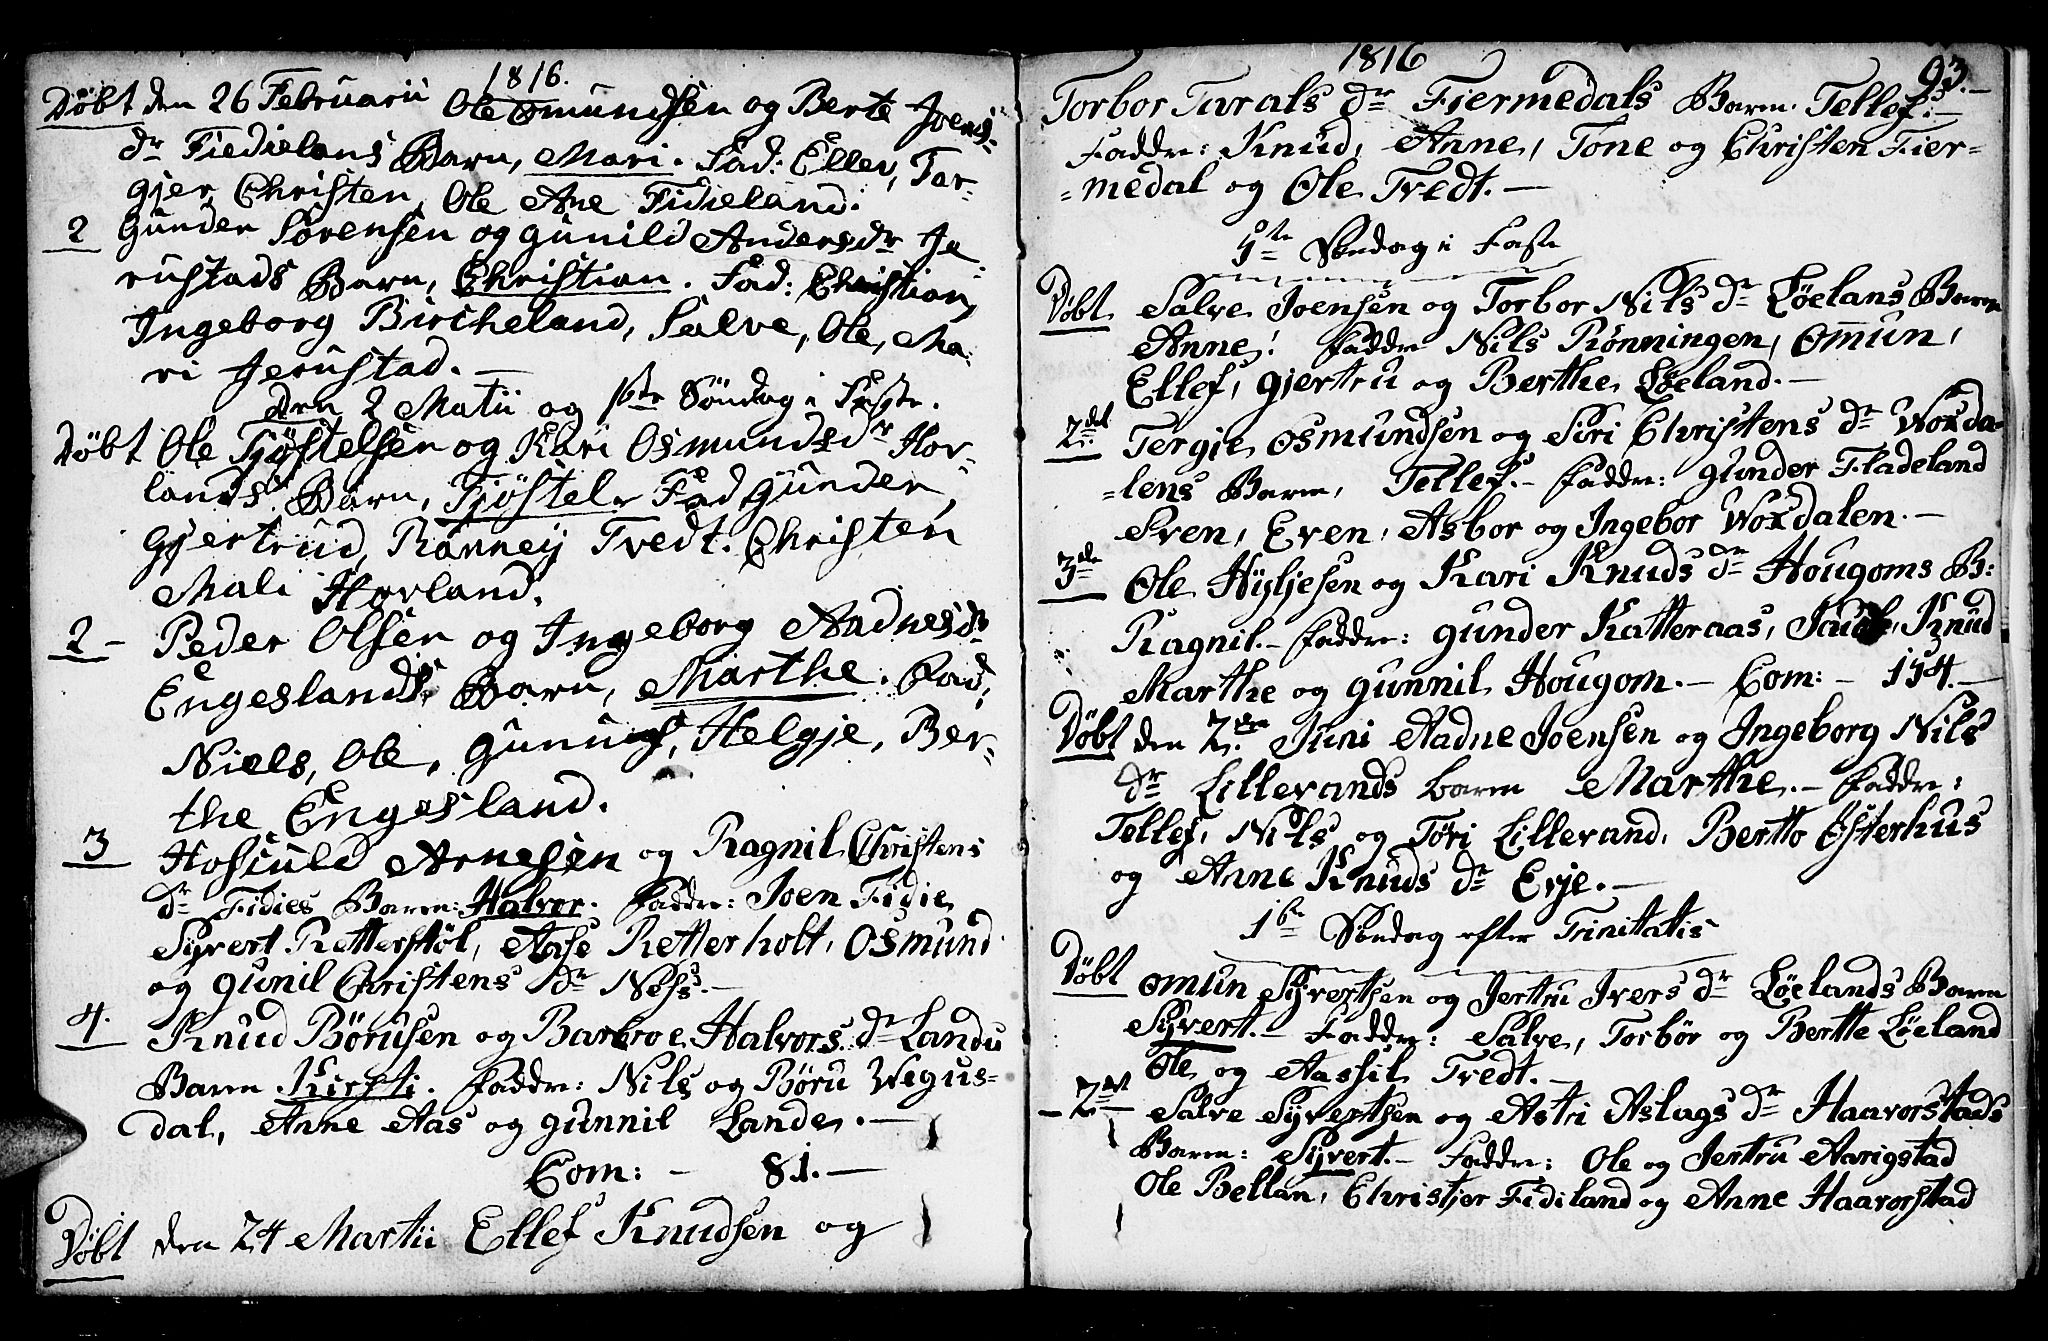 1816.
Døbt den 26 Februarii Ole Omundsen og Berte Joens
dr Fiedielans Barn, Mari. Fad: Ellev, Tar-
gjer, Christen, Ole Ane Fidieland.
2 Gunder Sörensen og Gunild Andersdr Je-
rustads Barn, Christian. Fad: Christian,
Ingeborg Bircheland, Salve, Ole, Ma-
ri Jerustad.—
Den 2 Matii og 1ste Söndag i Faste.
Døbt Ole Tjöstelsen og Kari Osmundsdr Hor-
lands Barn, Tjöstel. Fad Gunder,
Gjertrud, Rönney Tvedt. Christen
Mali Horland.
2 - Peder Olsen og Ingeborg Aadnesdr
Engeslands Barn, Marthe. Fad;
Niels, Ole, Helgje, Ber-
the Engesland.
3 Hosculd Arnesen og Ragnil Christens
dr Fidies Barn: Halvor. Faddre: Joen Fidie
Syvert Retterstøl, Aase Retterholt, Osmund
og Gunil Christens dr Ness.—
4. Knud Börusen og Barbroe Halvors dr Landu
Barn Kirsti. Faddre: Nils og Børu Wegus-
dal, Anne Aas og Gunnil Lande.—
Com: - 81.—
Døbt den 24 Martii Ellef Knudsen og
1816 93.—
Torbor Tarals dr Fiermedals Barn. Tellef.—
Faddre: Knud, Anne, Tone og Christen Fier-
=medal og Ole Tvedt.—
5te Søndag i Faste
Døbt Salve Joensen og Torbor Nils dr Løelans Barn
Anne! Faddre Nils Rönningen, Omun,
Ellef, Gjertru og Berthe Løeland.—
2det Tergie Osmundsen og Siri Christens dr Woxda-
-lens Barn, Tellef.— Faddre: Gunder Fladeland
Sven, Even, Asbor og Ingebor Woxdalen.—
3de Ole Hyljesen og Kari Knuds dr Hougoms B:
Ragnil.— Faddre: Gunder Katteraas, Knud
Marthe og Gunnil Hougom.— Com: - 154.—
Døbt den 2den Juni Aadne Joensen og Ingeborg Nils
dr Lillevands barn Marthe.— Faddre:
Tellef, Nils og Töri Lillevand, Bertto Østerhus
og Anne Knuds dr Evje.—
1ste Søndag efter Trinitatis
Døbt Omun Syvertsen og Jertru Ivers dr Løelands Barn
Syvert.— Faddre: Salve, Torbør og Bertte Løeland
Ole og Aassil Tvedt.—
2det Salve Syvertsen og Astri Aslags dr Haavorstads
Barn: Syvert.— Faddre: Ole og Jertru Aarigstad
Ole Bellan, Christjer Fidiland og Anne Haavorstad